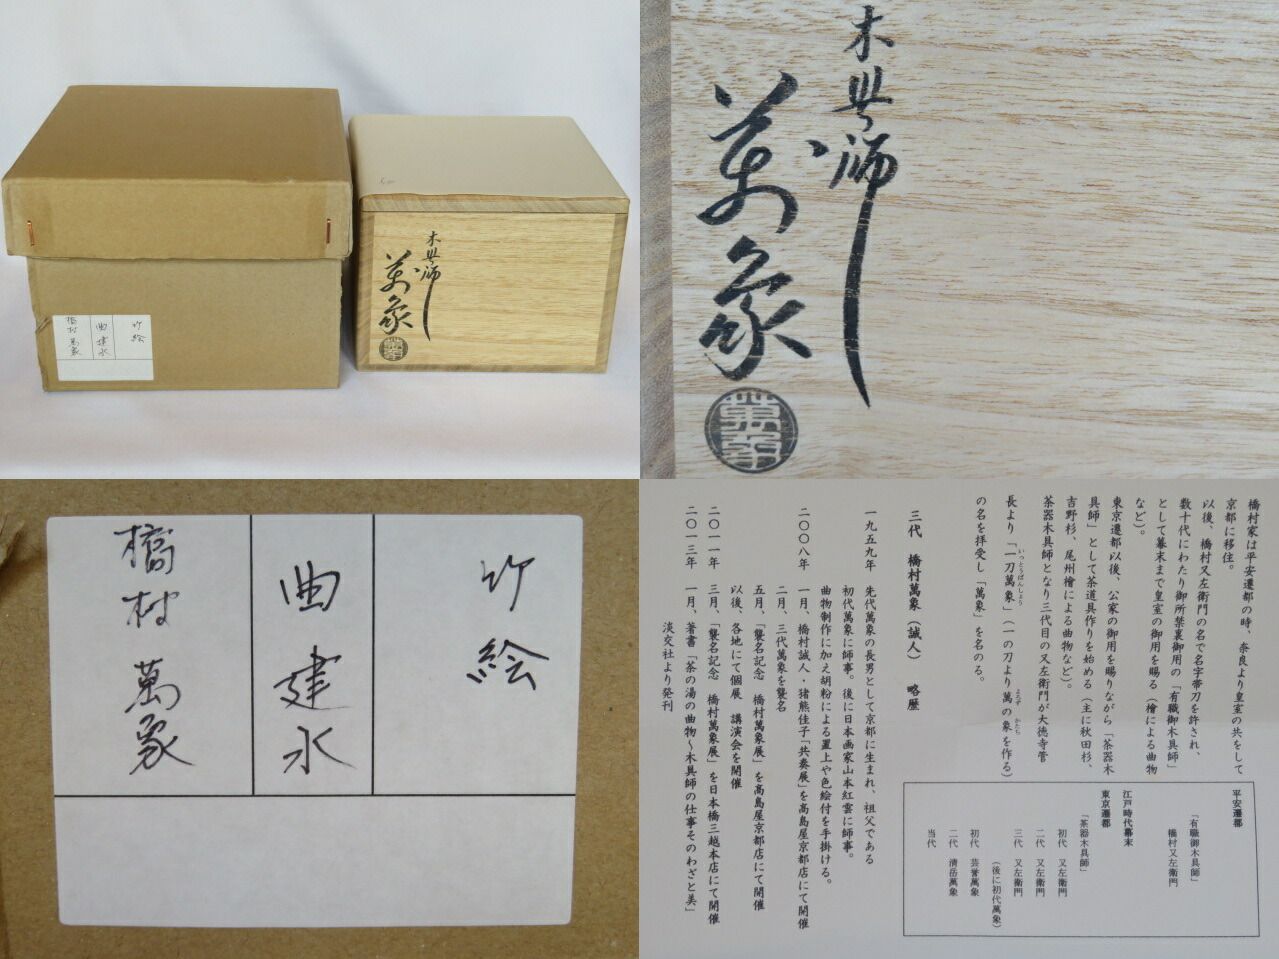 木具師
萬象
萬象
竹絵
曲建水
橋村萬象
木具師
萬象
萬象
竹絵
曲建水
橋村萬象
橋村家は平安遷都の時、奈良より皇室の共をして
京都に移住。
以後、橋村又左衛門の名で名字帯刀を許され、
数十代にわたり御所禁裏御用の「有職御木具師」
として幕末まで皇室の御用を賜る(檜による曲物
など)。
東京遷都以後、公家の御用を賜りながら「茶器木
具師」として茶道具作りを始める(主に秋田杉、
吉野杉、尾州檜による曲物など)。
茶器木具師となり三代目の又左衛門が大徳寺管
長より「一刀萬象」(一の刀より萬の象を作る)
いっとうばんしょう
よろず
かたち
の名を拝受し「萬象」を名のる。
平安遷都
「有職御木具師」
橋村又左衛門
江戸時代幕末
東京遷都
「茶器木具師」
初代 又左衛門
二代 又左衛門
三代 又左衛門
(後に初代萬象)
初代 芸誉萬象
二代 清岳萬象
当代
三代 橋村萬象(誠人) 略歴
一九五九年 先代萬象の長男として京都に生まれ、祖父である
初代萬象に師事。後に日本画家山本紅雲に師事。
曲物制作に加え胡粉による置上や色絵付を手掛ける。
二〇〇八年 一月、橋村誠人・猪熊佳子「共奏展」を高島屋京都店にて開催
二月、三代萬象を襲名
五月、「襲名記念 橋村萬象展」を高島屋京都店にて開催
以後、各地にて個展 講演会を開催
二〇一一年 三月、「襲名記念 橋村萬象展」を日本橋三越本店にて開催
二〇一三年 一月、著書「茶の湯の曲物〜木具師の仕事そのわざと美」
淡交社より発刊